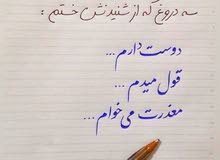 سه دروغ که از شنیدنش خستم :
دوست دارم ...
قول میدم ...
معذرت می خوام ...